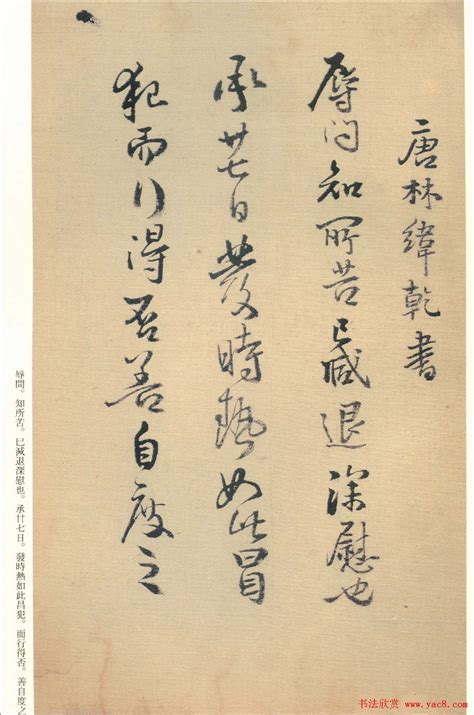 唐林緯乾書
辱問知所苦已減退深慰也
承廿七日發時熱如此冒
犯而行得否善自度之
辱問。知所苦。已減退深慰也。承廿七日。發時熱如此冒犯。而行得否。善自度之
书法欣赏
www.yac8.com